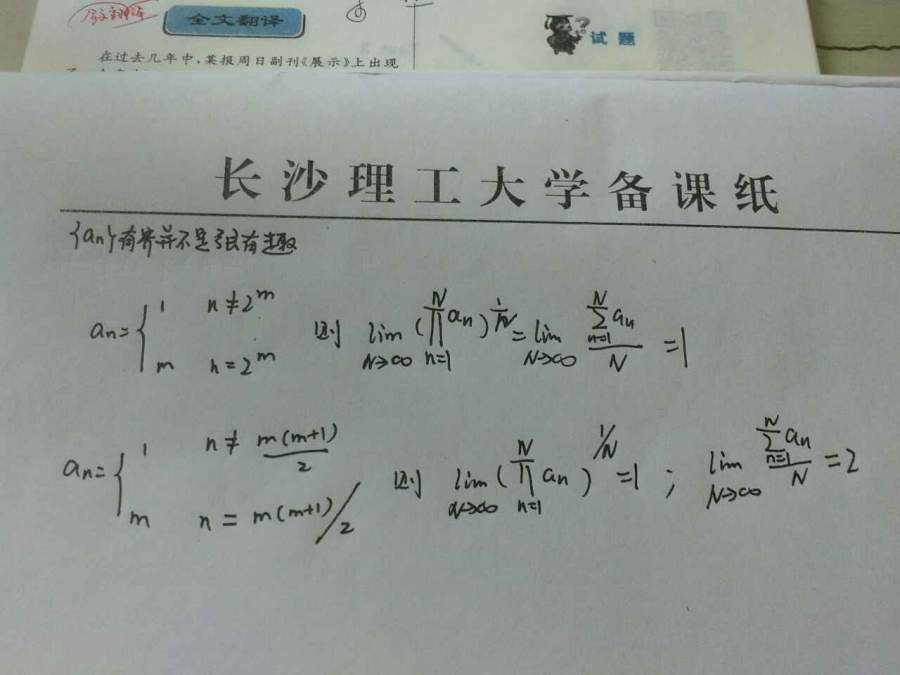 全文翻译
试题
在过去几年中,某报周日副刊《展示》上出现
长沙理工大学备课纸
{an}有界并不是很有趣
an = { 1 n ≠ 2^m
m n = 2^m
则 lim N→∞ (∏ n=1 N an)^(1/N) = lim N→∞ (∑ n=1 N an)/N = 1
an = { 1 n ≠ m(m+1)/2
m n = m(m+1)/2
则 lim N→∞ (∏ n=1 N an)^(1/N) = 1 ; lim N→∞ (∑ n=1 N an)/N = 2